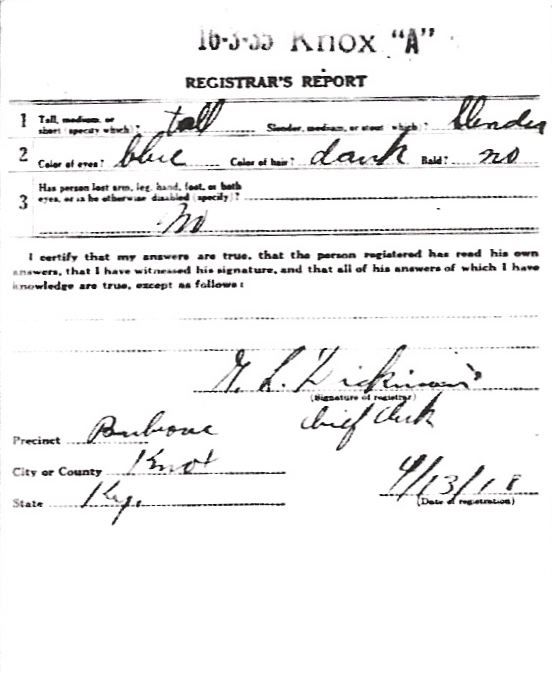 16-3-35 Knox "A"
REGISTRAR'S REPORT
1 Tall, medium, or short (specify which)? tall Slender, medium, or stout (which)? Slender
2 Color of eyes? blue Color of hair? dark Bald? no
3 Has person lost arm, leg, hand, foot, or both
eyes, or is he otherwise disabled (specify)?
No
I certify that my answers are true, that the person registered has read his own
answers, that I have witnessed his signature, and that all of his answers of which I have
knowledge are true, except as follows:
L. Dickinson
(Signature of registrar)
Chief Clerk
Precinct
City or County Knox
State Ky.
(Date of registration)